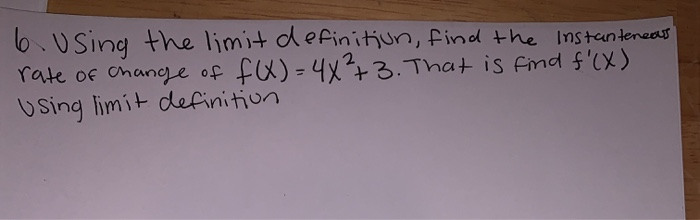 6. Using the limit definition, find the Instanteneous
rate of change of f(x) = 4x²+3. That is find f'(x)
Using limit definition